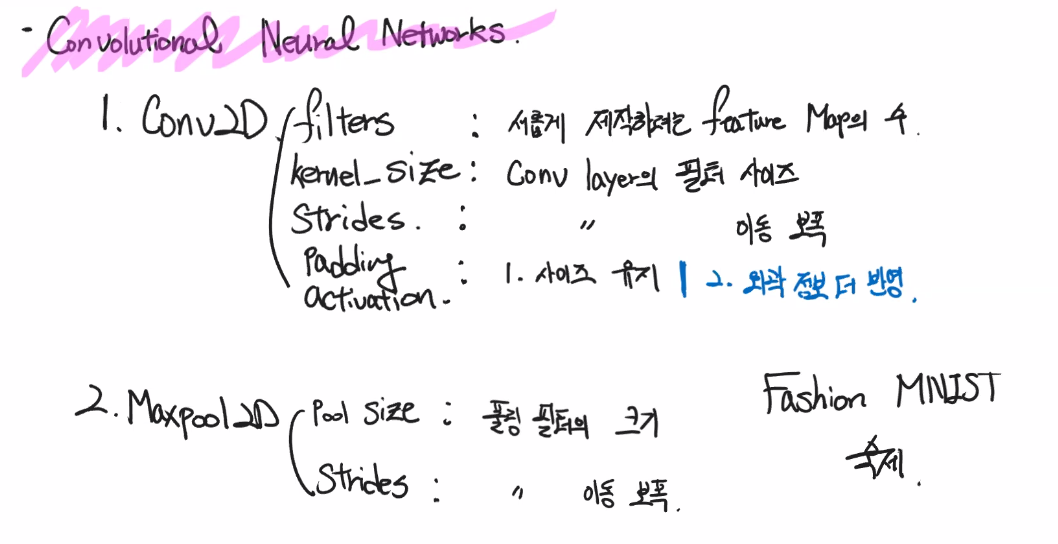 - Convolutional Neural Networks.
1. Conv2D filters : 서롭게 제작하려는 feature Map의 수.
kernel_size : Conv layer의 필터 사이즈
Strides. : 〃 이동 보폭
Padding : 1. 사이즈 유지 | 2. 외곽 정보 더 반영.
activation.
2. Maxpool2D Pool size : 풀링 필터의 크기
Strides : 〃 이동 보폭.
Fashion MNIST
숙제.